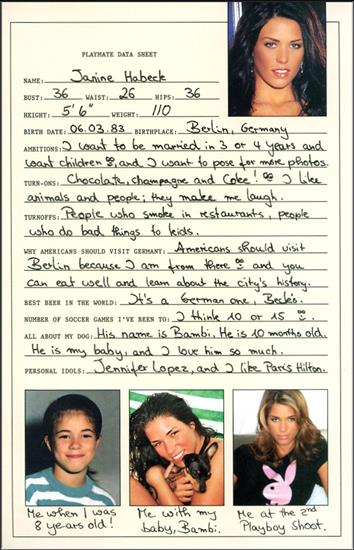 PLAYMATE DATA SHEET
NAME: Janine Habeck
BUST: 36 WAIST: 26 HIPS: 36
HEIGHT: 5'6" WEIGHT: 110
BIRTH DATE: 06.03.83 BIRTHPLACE: Berlin, Germany
AMBITIONS: I want to be married in 3 or 4 years and
want children, and I want to pose for more photos.
TURN-ONS: Chocolate, champagne and Coke! I like
animals and people; they make me laugh.
TURNOFFS: People who smoke in restaurants, people
who do bad things to kids.
WHY AMERICANS SHOULD VISIT GERMANY: Americans should visit
Berlin because I am from there and you
can eat well and learn about the city's history.
BEST BEER IN THE WORLD: It's a German one, Beck's.
NUMBER OF SOCCER GAMES I'VE BEEN TO: I think 10 or 15.
ALL ABOUT MY DOG: His name is Bambi. He is 10 months old.
He is my baby, and I love him so much.
PERSONAL IDOLS: Jennifer Lopez, and I like Paris Hilton.
Me when I was
8 years old!
Me with my
baby, Bambi.
Me at the 2nd
Playboy shoot.